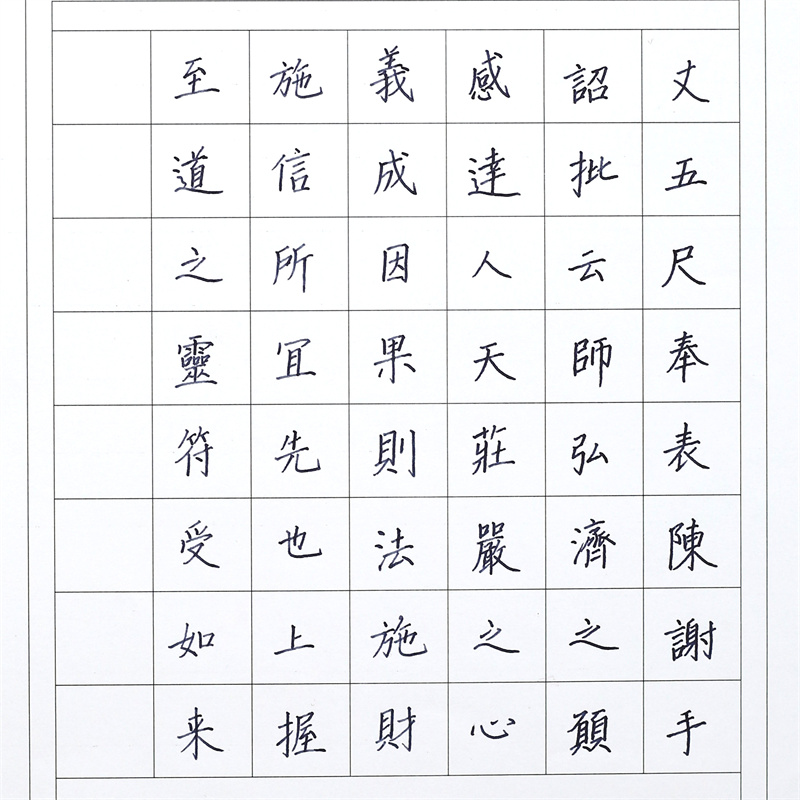 丈五尺奉表陳謝手
詔批云師弘濟之願
感達人天莊嚴之心
義成因果則法施財
施信所冝先也上握
至道之靈符受如来